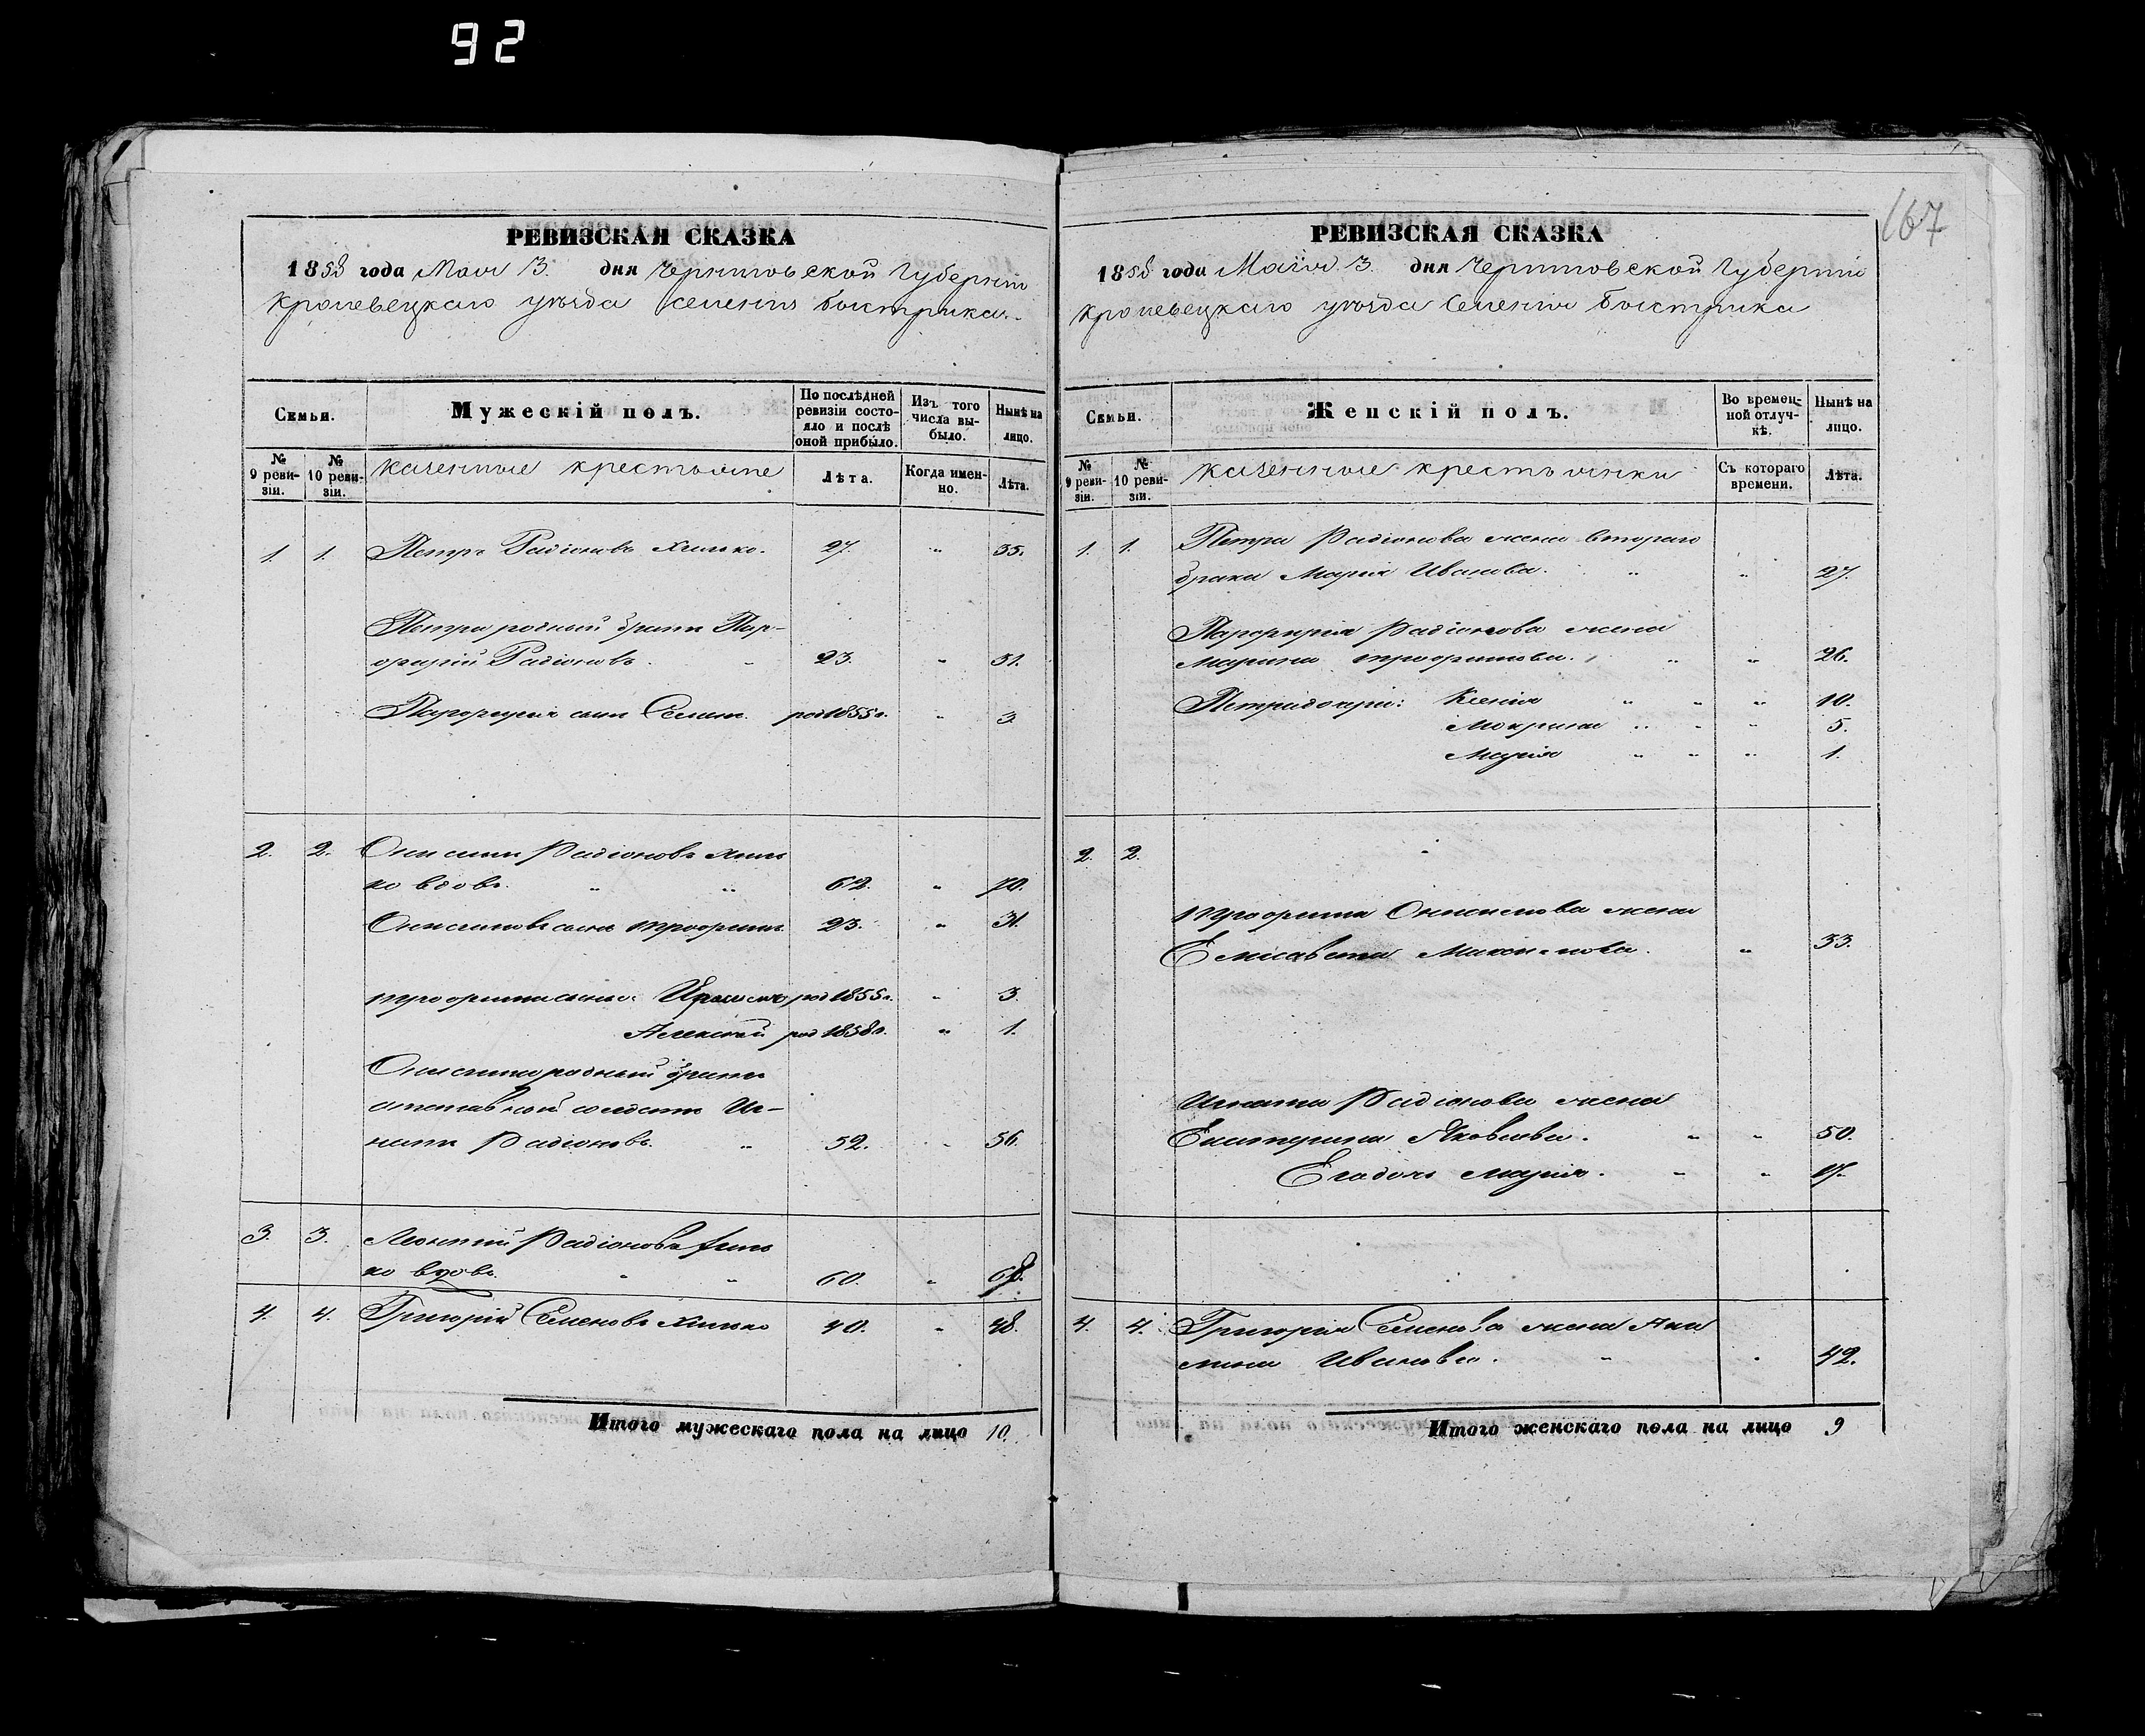 92
167
РЕВИЗСКАЯ СКАЗКА
1858 года Мая 13. дня Черниговской Губерніи
Кролевецкаго уѣзда селенія Быстрика.
Семьи.
Мужескій полъ.
По послѣдней ревизіи состояло и послѣ оной прибыло.
Изъ того числа выбыло.
Нынѣ на лицо.
№ 9 ревизіи.
№ 10 ревизіи.
казенные крестьяне
Лѣта.
Когда именно.
Лѣта.
1. 1. Петръ Радіоновъ Хилько. 27. " 35.
Петра родный братъ Пор-
фирій Радіоновъ. " 23. " 31.
Порфирія сынъ Семенъ. род 1855 г. " 3.
2. 2. Онисимъ Радіоновъ Хиль
ко вдовъ. " " 62. " 70.
Онисимовъ сынъ Трофимъ 23. " 31.
Трофима сыны: род 1855 г. " 3.
Алексѣй род 1858 г. " 1.
Онисима родный братъ
отставной солдатъ Иг-
натъ Радіоновъ. " 52. " 56.
3. 3. Леонтій Радіоновъ Хиль
ко вдовъ. " " 60. " 68.
4. 4. Григорій Семеновъ Хилько 40. " 48.
Итого мужескаго пола на лицо 10.
РЕВИЗСКАЯ СКАЗКА
1858 года Маія 13. дня Черниговской Губерніи
Кролевецкаго уѣзда Селенія Быстрика
Семьи.
Женскій полъ.
Во временной отлучкѣ.
Нынѣ на лицо.
№ 9 ревизіи.
№ 10 ревизіи.
казенные крестьянки
Съ котораго времени.
Лѣта.
1. 1. Петра Радіонова жена втораго
брака Марія Иванова. " " 27.
Порфирія Радіонова жена
Марина Трофимова. " " 26.
Петра дочери: Ксенія " " " 10.
Мокрина " " " 5.
Марія " " " 1.
2. 2. "
Трофима Онисимова жена
Елисавета Максимова. " 33.
Игната Радіонова жена
Екатерина Яковлева. " " 50.
Его дочь Марія. " " 17.
4. 4. Григорія Семенова жена Аки
лина Иванова. " " 42.
Итого женскаго пола на лицо 9